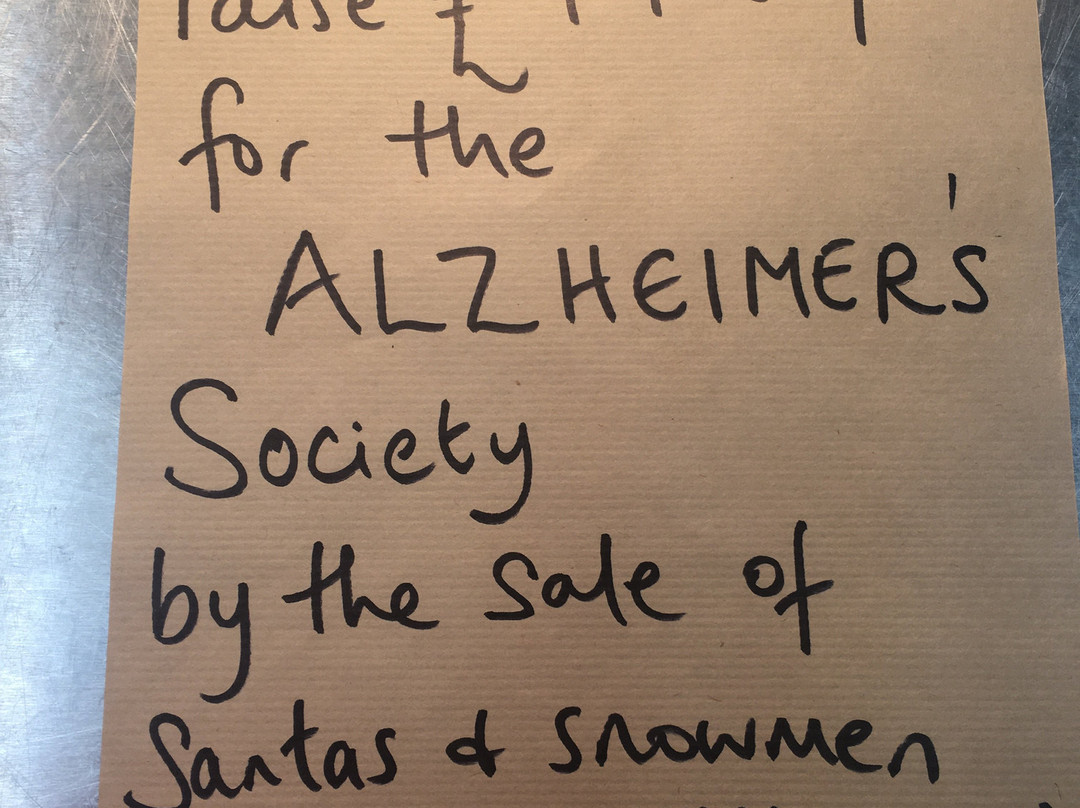 raise £
for the
ALZHEIMER'S
Society
by the sale of
Santas & snowmen